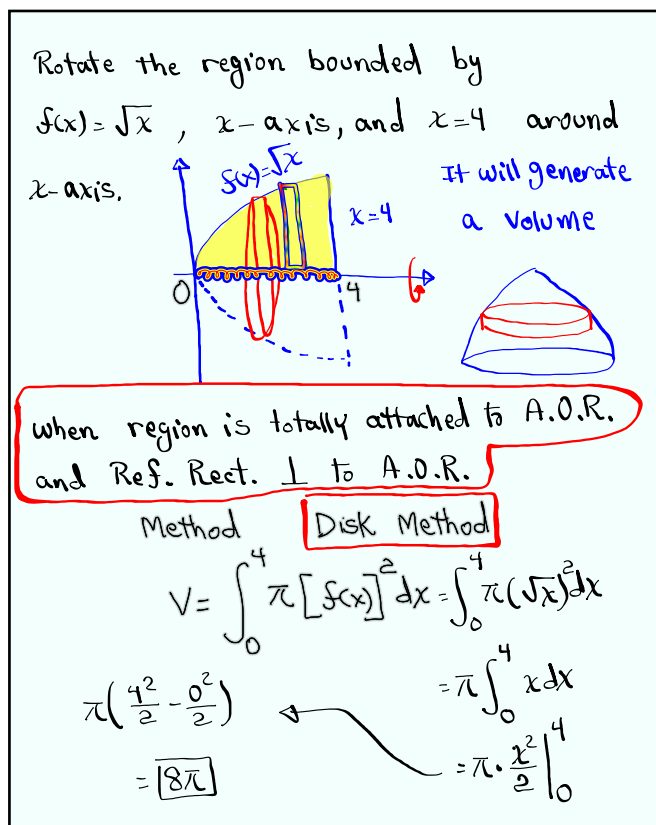 Rotate the region bounded by
f(x) = √x , x-axis, and x=4 around
x-axis.
f(x)=√x
It will generate
a volume
x=4
0
4
when region is totally attached to A.O.R.
and Ref. Rect. ⊥ to A.O.R.
Method Disk Method
V = ∫₀⁴ π [f(x)]² dx = ∫₀⁴ π(√x)² dx
= π ∫₀⁴ x dx
= π · x²/2 |₀⁴
π(4²/2 - 0²/2)
= 8π